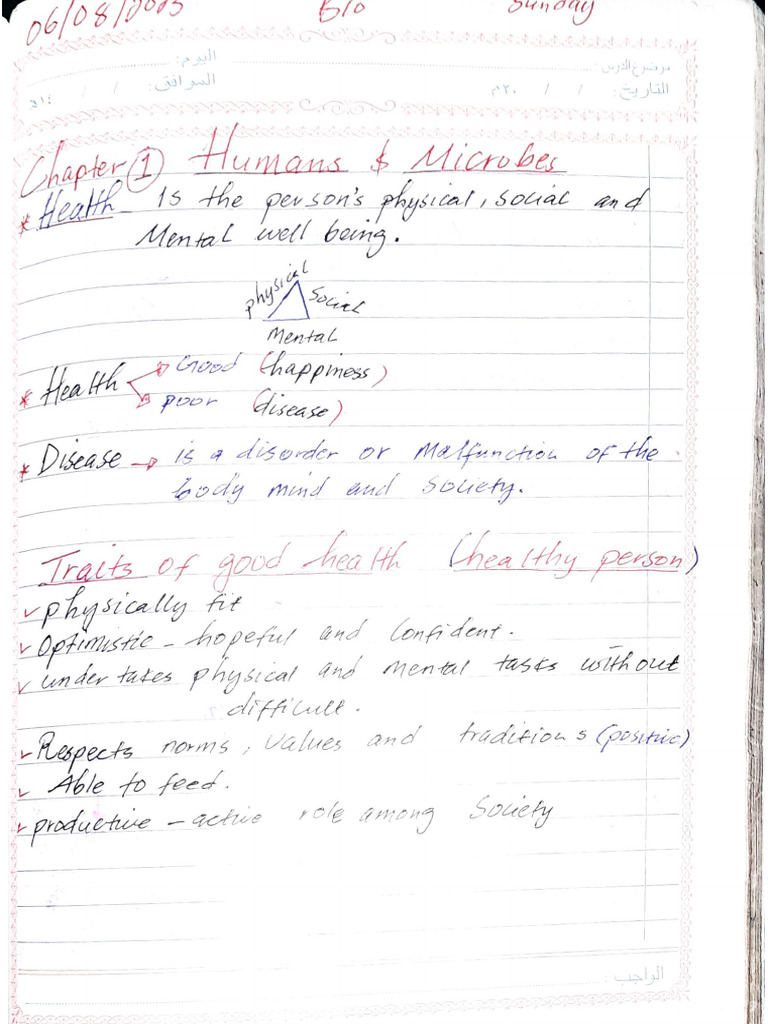 06/08/2023 Bio Sunday
موضوع الدرس: اليوم:
التاريخ: / / ٢٠م الموافق: / / ١٤هـ
Chapter 1 Humans & Microbes
* Health - Is the person's physical, social and
Mental well being.
physical Social
Mental
* Health Good (happiness)
poor (disease)
* Disease → is a disorder or Malfunction of the
body mind and society.
Traits of good health (healthy person)
✓ physically fit
✓ Optimistic - hopeful and Confident.
✓ under takes physical and Mental tasks without
difficult.
✓ Respects norms, values and traditions (positive)
✓ Able to feed.
✓ productive - active role among Society
الواجب: